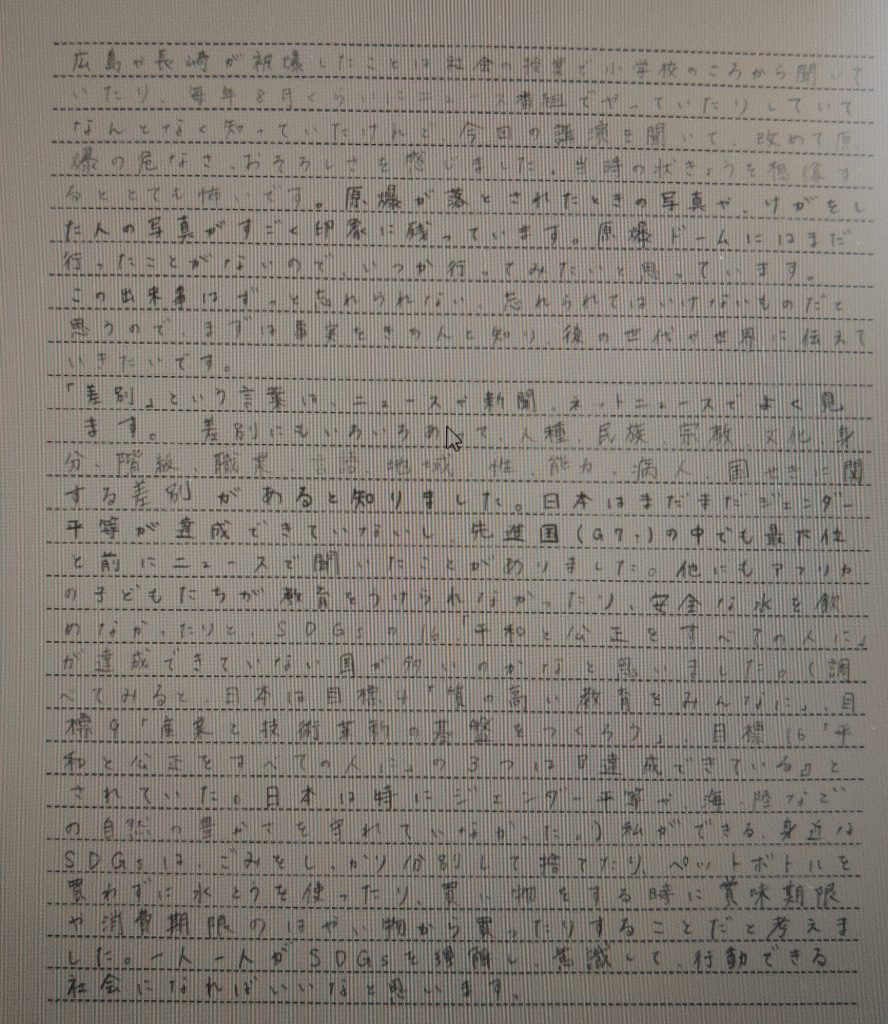 広島や長崎が被爆したことは社会の授業で小学校のころから聞いて
いたり、毎年8月くらいにニュース番組でやっていたりしていて
なんとなく知っていたけれど、今回の講演を聞いて、改めて原
爆の危なさ、おそろしさを感じました。当時の状きょうを想像す
るととても怖いです。原爆が落とされたときの写真や、けがをし
た人の写真がすごく印象に残っています。原爆ドームにはまだ
行ったことがないので、いつか行ってみたいと思っています。
この出来事はずっと忘れられない、忘れられてはいけないものだと
思うので、まずは事実をきちんと知り、後の世代や世界に伝えて
いきたいです。
「差別」という言葉は、ニュースや新聞、ネットニュースでよく見
ます。差別にもいろいろあって、人種、民族、宗教、文化、身
分、階級、職業、言語、地域、性、能力、病人、国せきに関
する差別があると知りました。日本はまだまだジェンダー
平等が達成できていないし、先進国(G7)の中でも最下位
と前にニュースで聞いたことがありました。他にもアフリカ
の子どもたちが教育をうけられなかったり、安全な水を飲
めなかったりと、SDGsの16「平和と公正をすべての人に」
が達成できていない国が多いのかなと思いました。(調
べてみると、日本は目標4「質の高い教育をみんなに」、目
標9「産業と技術革新の基盤をつくろう」、目標16「平
和と公正をすべての人に」の3つは『達成できている』と
されていた。日本は特にジェンダー平等や、海・陸など
の自然の豊かさを守れていなかった。)私ができる、身近な
SDGsは、ごみをしっかり分別して捨てたり、ペットボトルを
買わずに水とうを使ったり、買い物をする時に賞味期限
や消費期限のはやい物から買ったりすることだと考えま
した。一人一人がSDGsを理解し、意識して、行動できる
社会になればいいなと思います。